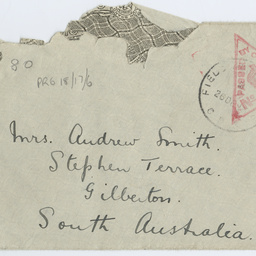 80
PRG 18/17/6
FIEL
PASSED BY
Mrs. Andrew Smith.
Stephen Terrace.
Gilberton.
South Australia.